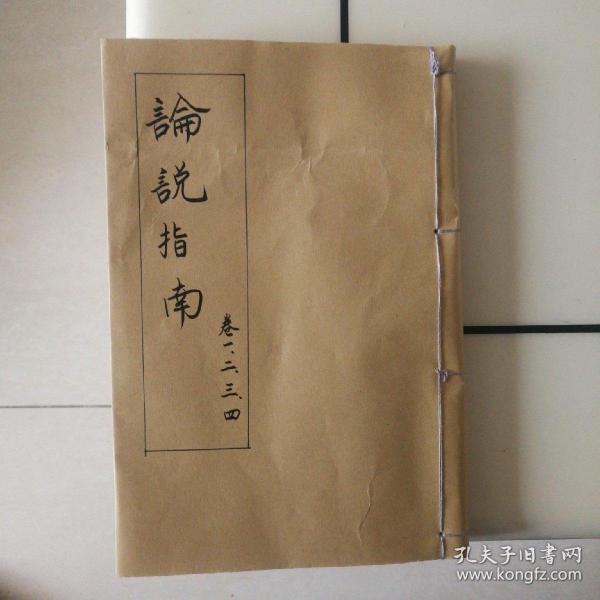 論説指南
卷一、二、三、四
孔夫子旧書网
www.kongfz.com